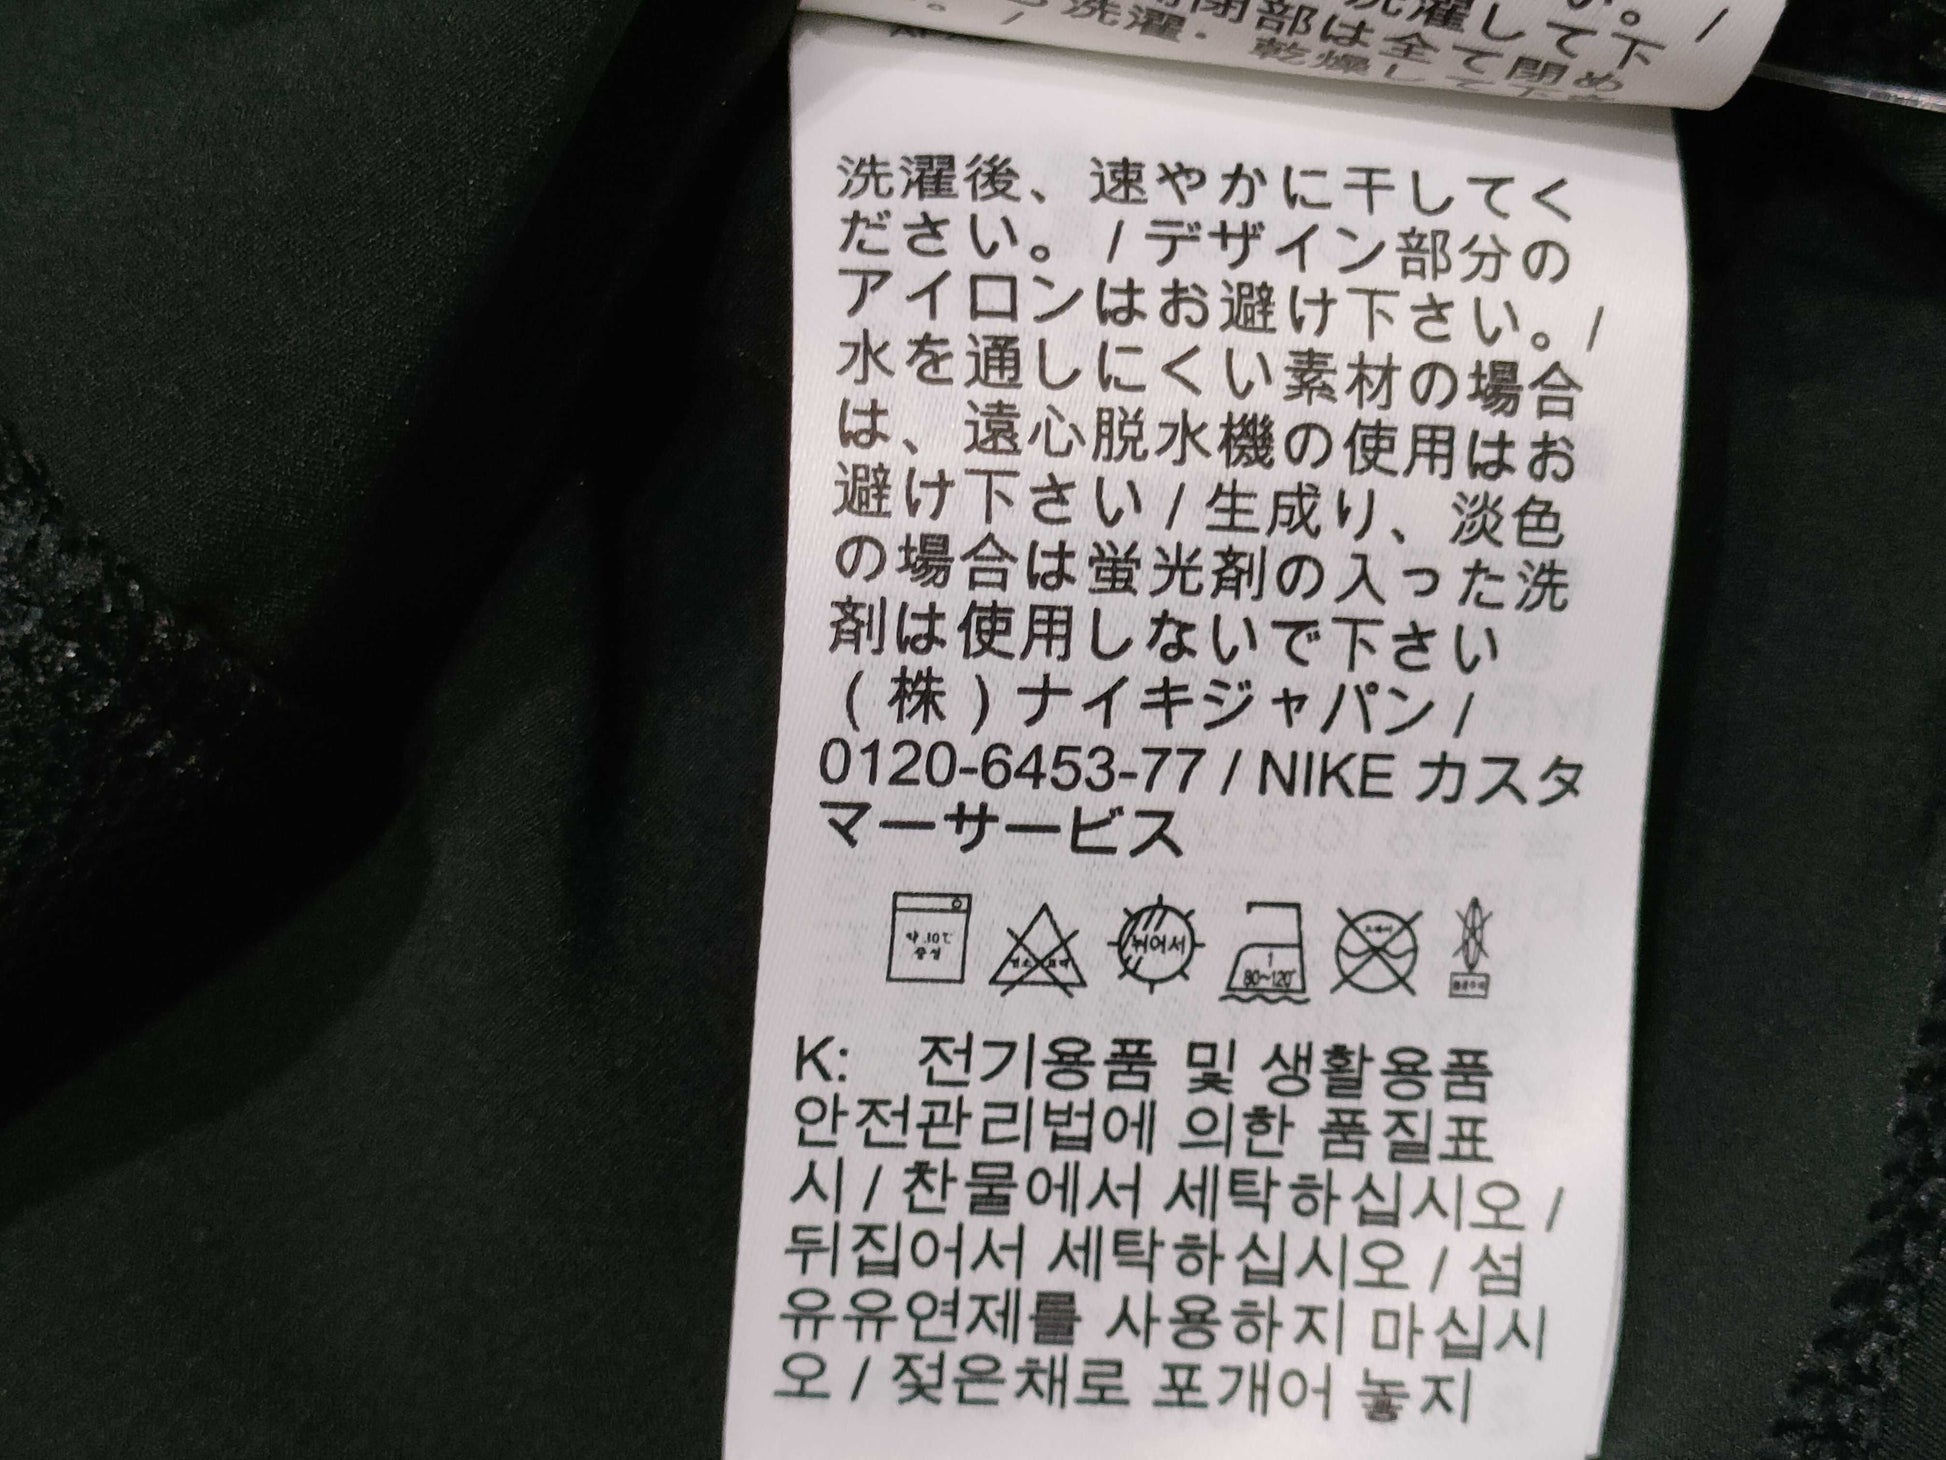 洗濯して下
閉部は全て閉め
洗濯・乾燥して下さ
洗濯後、速やかに干してく
ださい。/デザイン部分の
アイロンはお避け下さい。/
水を通しにくい素材の場合
は、遠心脱水機の使用はお
避け下さい / 生成り、淡色
の場合は蛍光剤の入った洗
剤は使用しないで下さい
(株)ナイキジャパン /
0120-6453-77 / NIKE カスタ
マーサービス
뉘어서
80~120℃
K: 전기용품 및 생활용품
안전관리법에 의한 품질표
시 / 찬물에서 세탁하십시오 /
뒤집어서 세탁하십시오 / 섬
유유연제를 사용하지 마십시
오 / 젖은채로 포개어 놓지